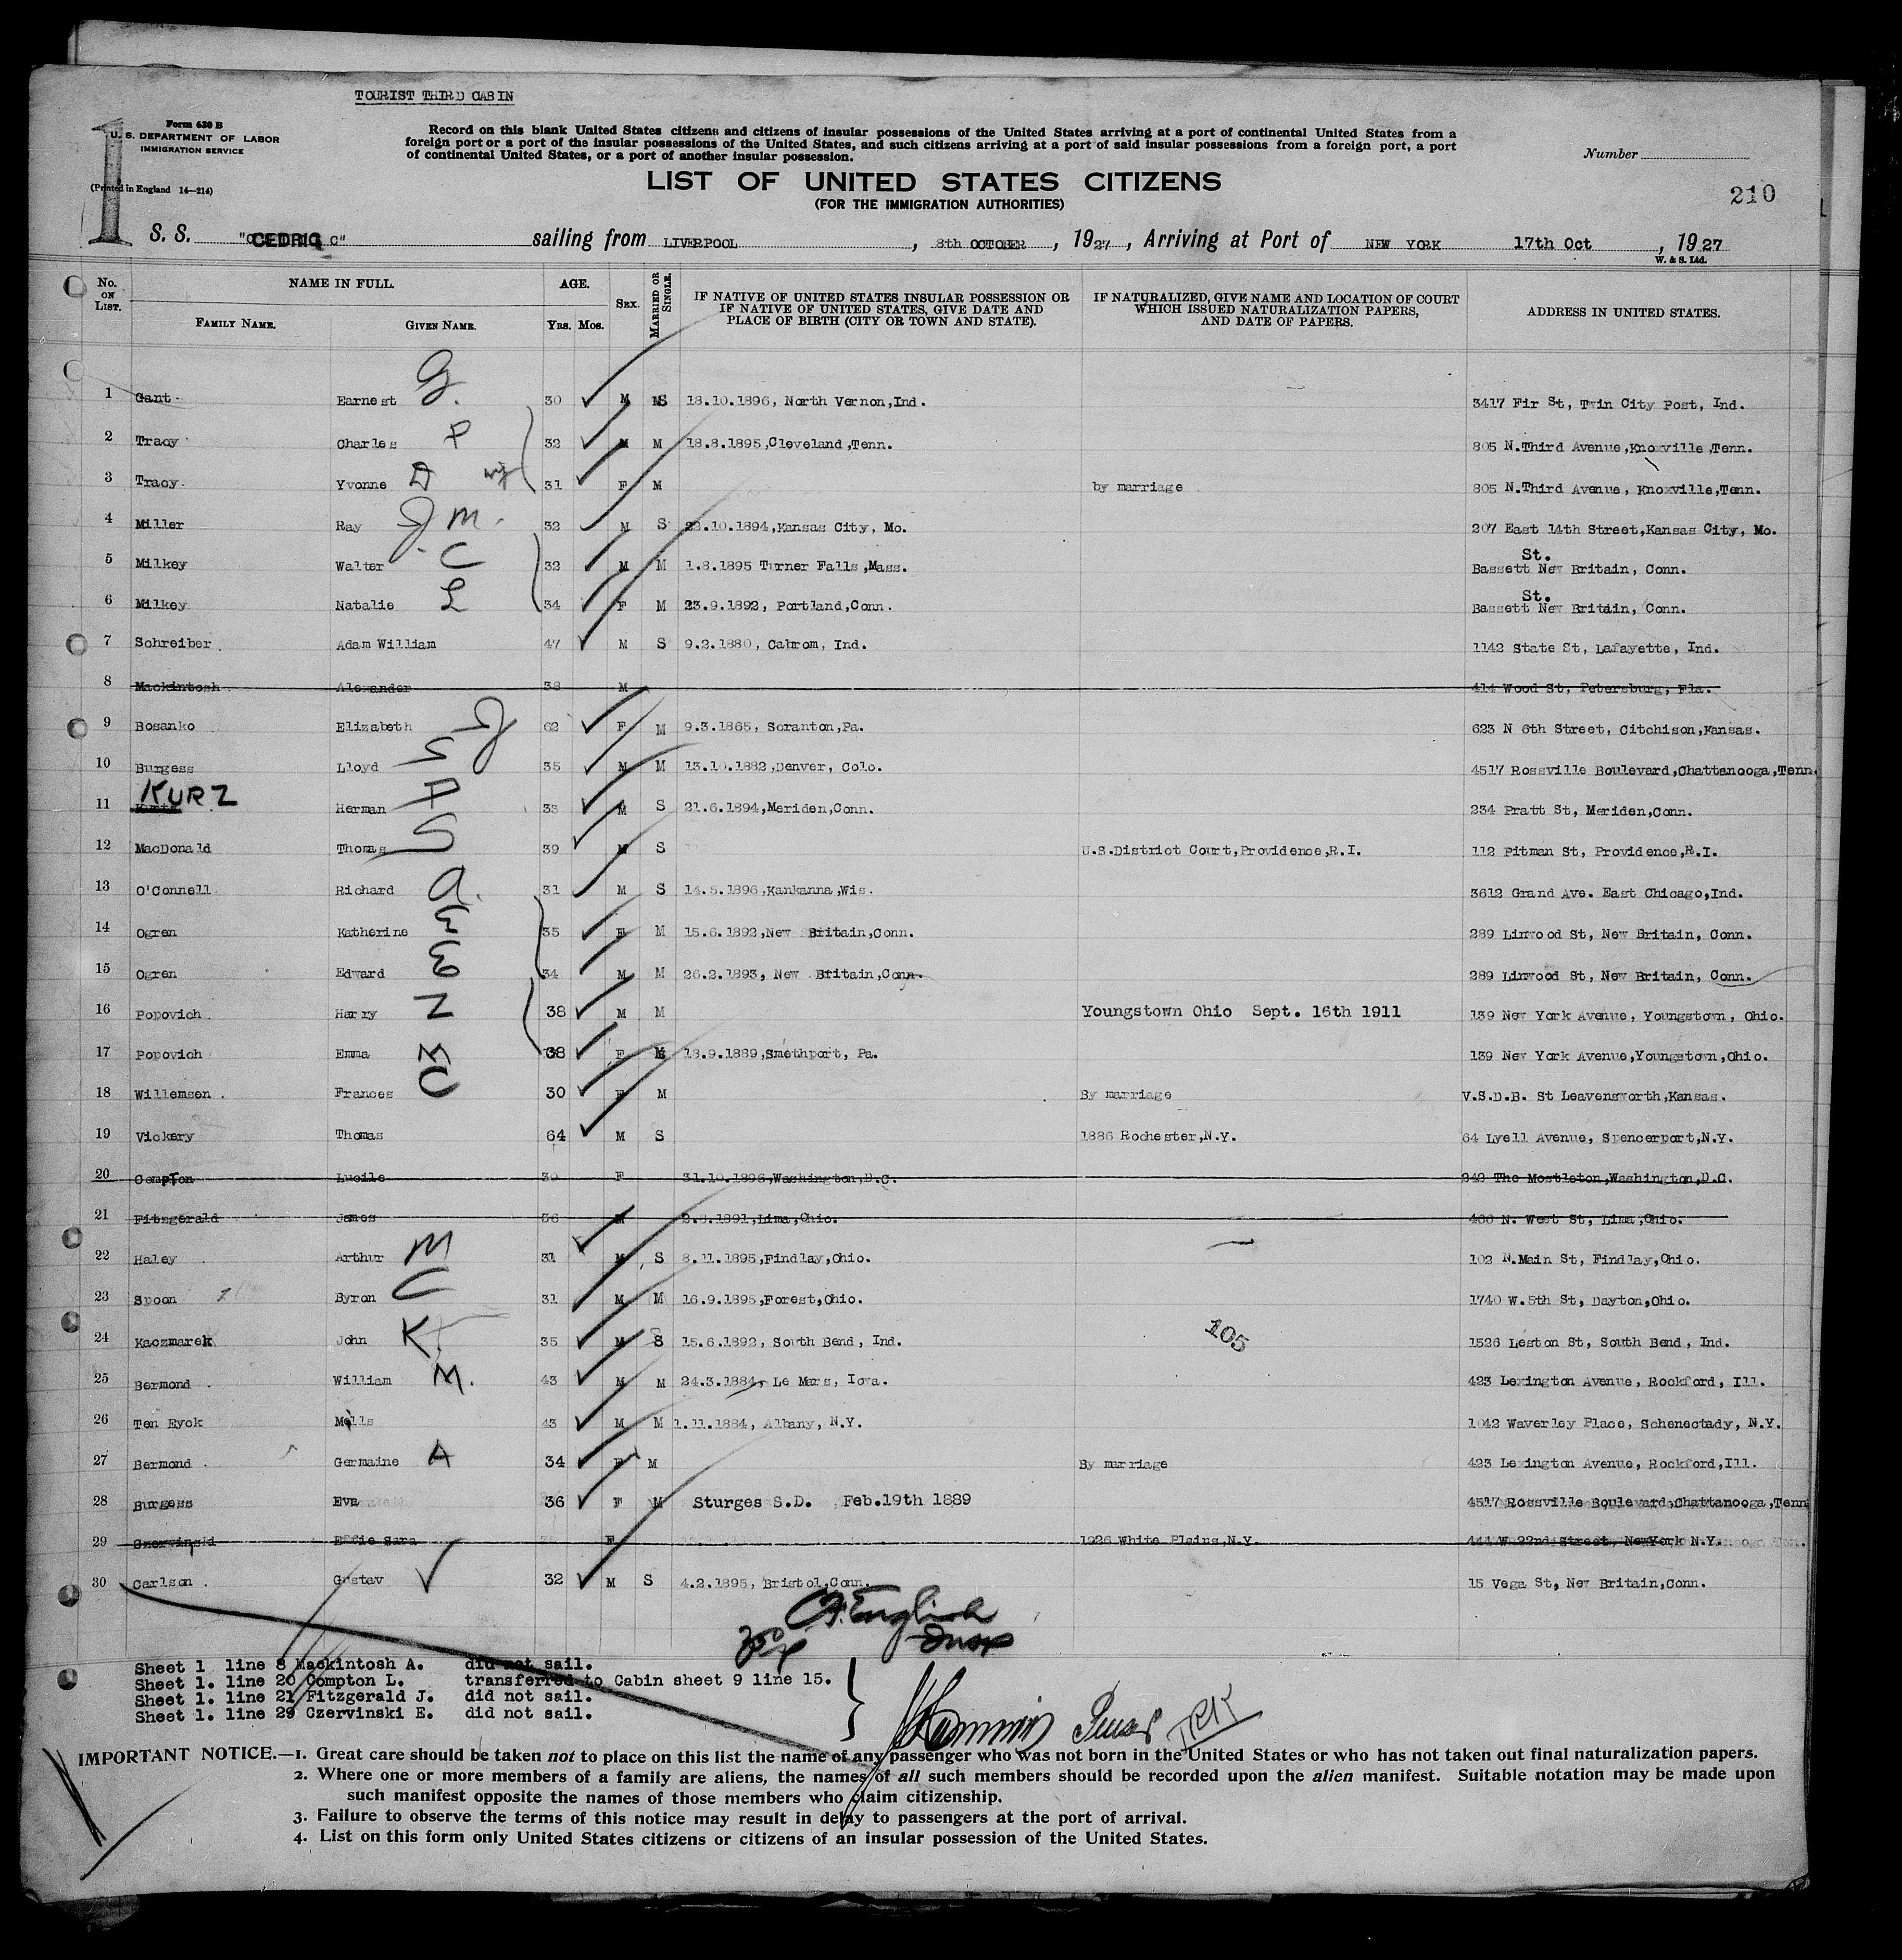 TOURIST THIRD CABIN
Form 630 B
U. S. DEPARTMENT OF LABOR
IMMIGRATION SERVICE
(Printed in England 14—214)
1
Record on this blank United States citizens and citizens of insular possessions of the United States arriving at a port of continental United States from a
foreign port or a port of the insular possessions of the United States, and such citizens arriving at a port of said insular possessions from a foreign port, a port
of continental United States, or a port of another insular possession.
Number
LIST OF UNITED STATES CITIZENS
(FOR THE IMMIGRATION AUTHORITIES)
210
S. S. "CEDRIC" sailing from LIVERPOOL, 8th OCTOBER, 1927, Arriving at Port of NEW YORK 17th Oct, 1927
W. & S. Ltd.
No. ON LIST. NAME IN FULL. AGE. SEX. MARRIED OR SINGLE. IF NATIVE OF UNITED STATES INSULAR POSSESSION OR IF NATIVE OF UNITED STATES, GIVE DATE AND PLACE OF BIRTH (CITY OR TOWN AND STATE). IF NATURALIZED, GIVE NAME AND LOCATION OF COURT WHICH ISSUED NATURALIZATION PAPERS, AND DATE OF PAPERS. ADDRESS IN UNITED STATES.
FAMILY NAME. GIVEN NAME. Yrs. Mos.
1 Gant Earnest G. 30 M S 18.10.1896, North Vernon,Ind. 3417 Fir St, Twin City Post, Ind.
2 Tracy Charles P 32 M M 18.8.1895,Cleveland,Tenn. 805 N.Third Avenue,Knoxville,Tenn.
3 Tracy. Yvonne D wf 31 F M by marriage 805 N.Third Avenue, Knoxville,Tenn.
4 Miller Ray J M. 32 M S 22.10.1894,Kansas City, Mo. 207 East 14th Street,Kansas City, Mo.
5 Milkey Walter C 32 M M 1.8.1895 Turner Falls,Mass. Bassett St. New Britain, Conn.
6 Milkey Natalie L 34 F M 23.9.1892, Portland,Conn. Bassett St. New Britain, Conn.
7 Schreiber. Adam William 47 M S 9.2.1880, Cabrom, Ind. 1142 State St, Lafayette, Ind.
8 Mackintosh Alexander 38 M 414 Wood St, Petersburg, Fla.
9 Bosanko Elizabeth J 62 F M 9.3.1865, Scranton,Pa. 623 N 6th Street, Citchison,Kansas.
10 Burgess Lloyd 35 M M 13.10.1882,Denver, Colo. 4517 Rossville Boulevard,Chattanooga,Tenn.
11 KURZ Herman 33 M S 21.6.1894,Meriden,Conn. 234 Pratt St, Meriden,Conn.
12 MacDonald Thomas 39 M S U.S.District Court,Providence,R.I. 112 Pitman St, Providence,R.I.
13 O'Connell Richard A. 31 M S 14.5.1896,Kankanna,Wis. 3612 Grand Ave. East Chicago,Ind.
14 Ogren Katherine E 35 F M 15.6.1892,New Britain,Conn. 289 Linwood St, New Britain, Conn.
15 Ogren Edward 34 M M 26.2.1893, New Britain,Conn. 289 Linwood St, New Britain, Conn.
16 Popovich. Harry N 38 M M Youngstown Ohio Sept. 16th 1911 139 New York Avenue, Youngstown, Ohio.
17 Popovich Emma 38 F M 18.9.1889,Smethport, Pa. 139 New York Avenue,Youngstown,Ohio.
18 Willemsen. Frances 30 F M By marriage V.S.D.B. St Leavensworth,Kansas.
19 Vickery Thomas 64 M S 1886 Rochester,N.Y. 64 Lyell Avenue, Spencerport,N.Y.
20 Compton Lucile 30 F 31.10.1896,Washington,D.C. 242 The Mostleton,Washington,D.C.
21 Fitzgerald James 36 M 2.8.1891,Lima,Ohio. 436 N. West St, Lima,Ohio.
22 Haley Arthur M 31 M S 8.11.1895,Findlay,Ohio. 102 N.Main St, Findlay,Ohio.
23 Spoon Byron C 31 M M 16.9.1895,Forest,Ohio. 1740 W.5th St, Dayton,Ohio.
24 Kaczmarek John K. 35 M S 15.6.1892, South Bend, Ind. 105 1526 Leston St, South Bend, Ind.
25 Bermond. William M. 43 M M 24.3.1884, Le Mars, Iowa. 423 Lexington Avenue, Rockford, Ill.
26 Ten Eyck Mills 43 M M 1.11.1884, Albany, N.Y. 1042 Waverley Place, Schenectady, N.Y.
27 Bermond. Germaine A 34 F M By marriage 423 Lexington Avenue, Rockford,Ill.
28 Burgess Eva 36 F M Sturges S.D. Feb.19th 1889 4517 Rossville Boulevard,Chattanooga,Tenn
29 Czervinski Effie Sara F 1926 White Plains,N.Y. 444 W 22nd Street, NewYork N.Y.
30 Carlson. Gustav 32 M S 4.2.1895, Bristol,Conn. 15 Vega St, New Britain,Conn.
English
Insp
Sheet 1 line 8 Mackintosh A. did not sail.
Sheet 1. line 20 Compton L. transferred to Cabin sheet 9 line 15.
Sheet 1. line 21 Fitzgerald J. did not sail.
Sheet 1. line 29 Czervinski E. did not sail.
IMPORTANT NOTICE.—1. Great care should be taken not to place on this list the name of any passenger who was not born in the United States or who has not taken out final naturalization papers.
2. Where one or more members of a family are aliens, the names of all such members should be recorded upon the alien manifest. Suitable notation may be made upon
such manifest opposite the names of those members who claim citizenship.
3. Failure to observe the terms of this notice may result in delay to passengers at the port of arrival.
4. List on this form only United States citizens or citizens of an insular possession of the United States.